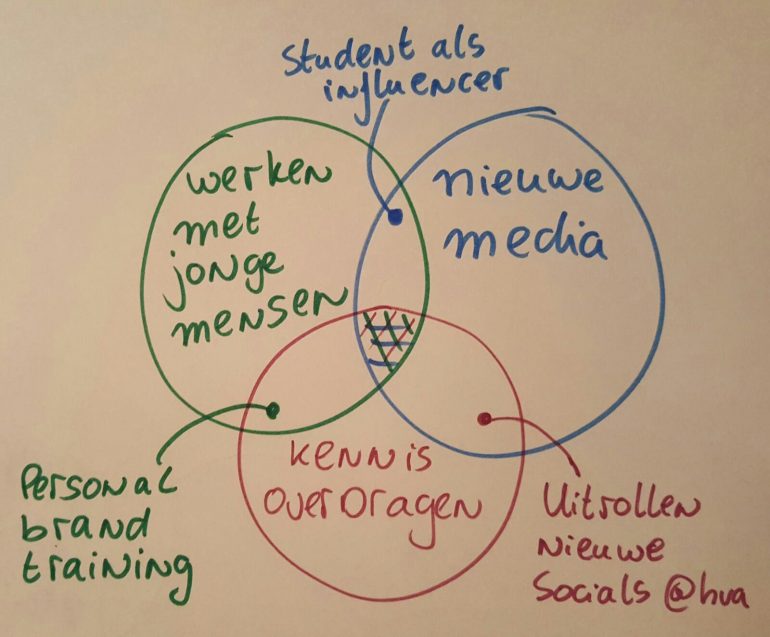 Student als
influencer
werken
met
jonge
mensen
nieuwe
media
kennis
overdragen
Personal
brand
training
Uitrollen
nieuwe
Socials @hva